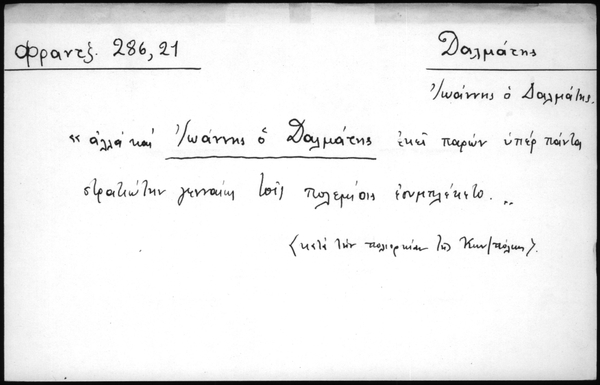 Φραντζ. 286,21
Δαλμάτης
Ἰωάννης ὁ Δαλμάτης.
« ἀλλὰ καὶ Ἰωάννης ὁ Δαλμάτης ἐκεῖ παρὼν ὑπὲρ πάντα
στρατιώτην γενναίως τοῖς πολεμίοις ἐσυμπλέκετο. „
〈κατὰ τὴν πολιορκίαν τῆς Κων/πόλεως〉.